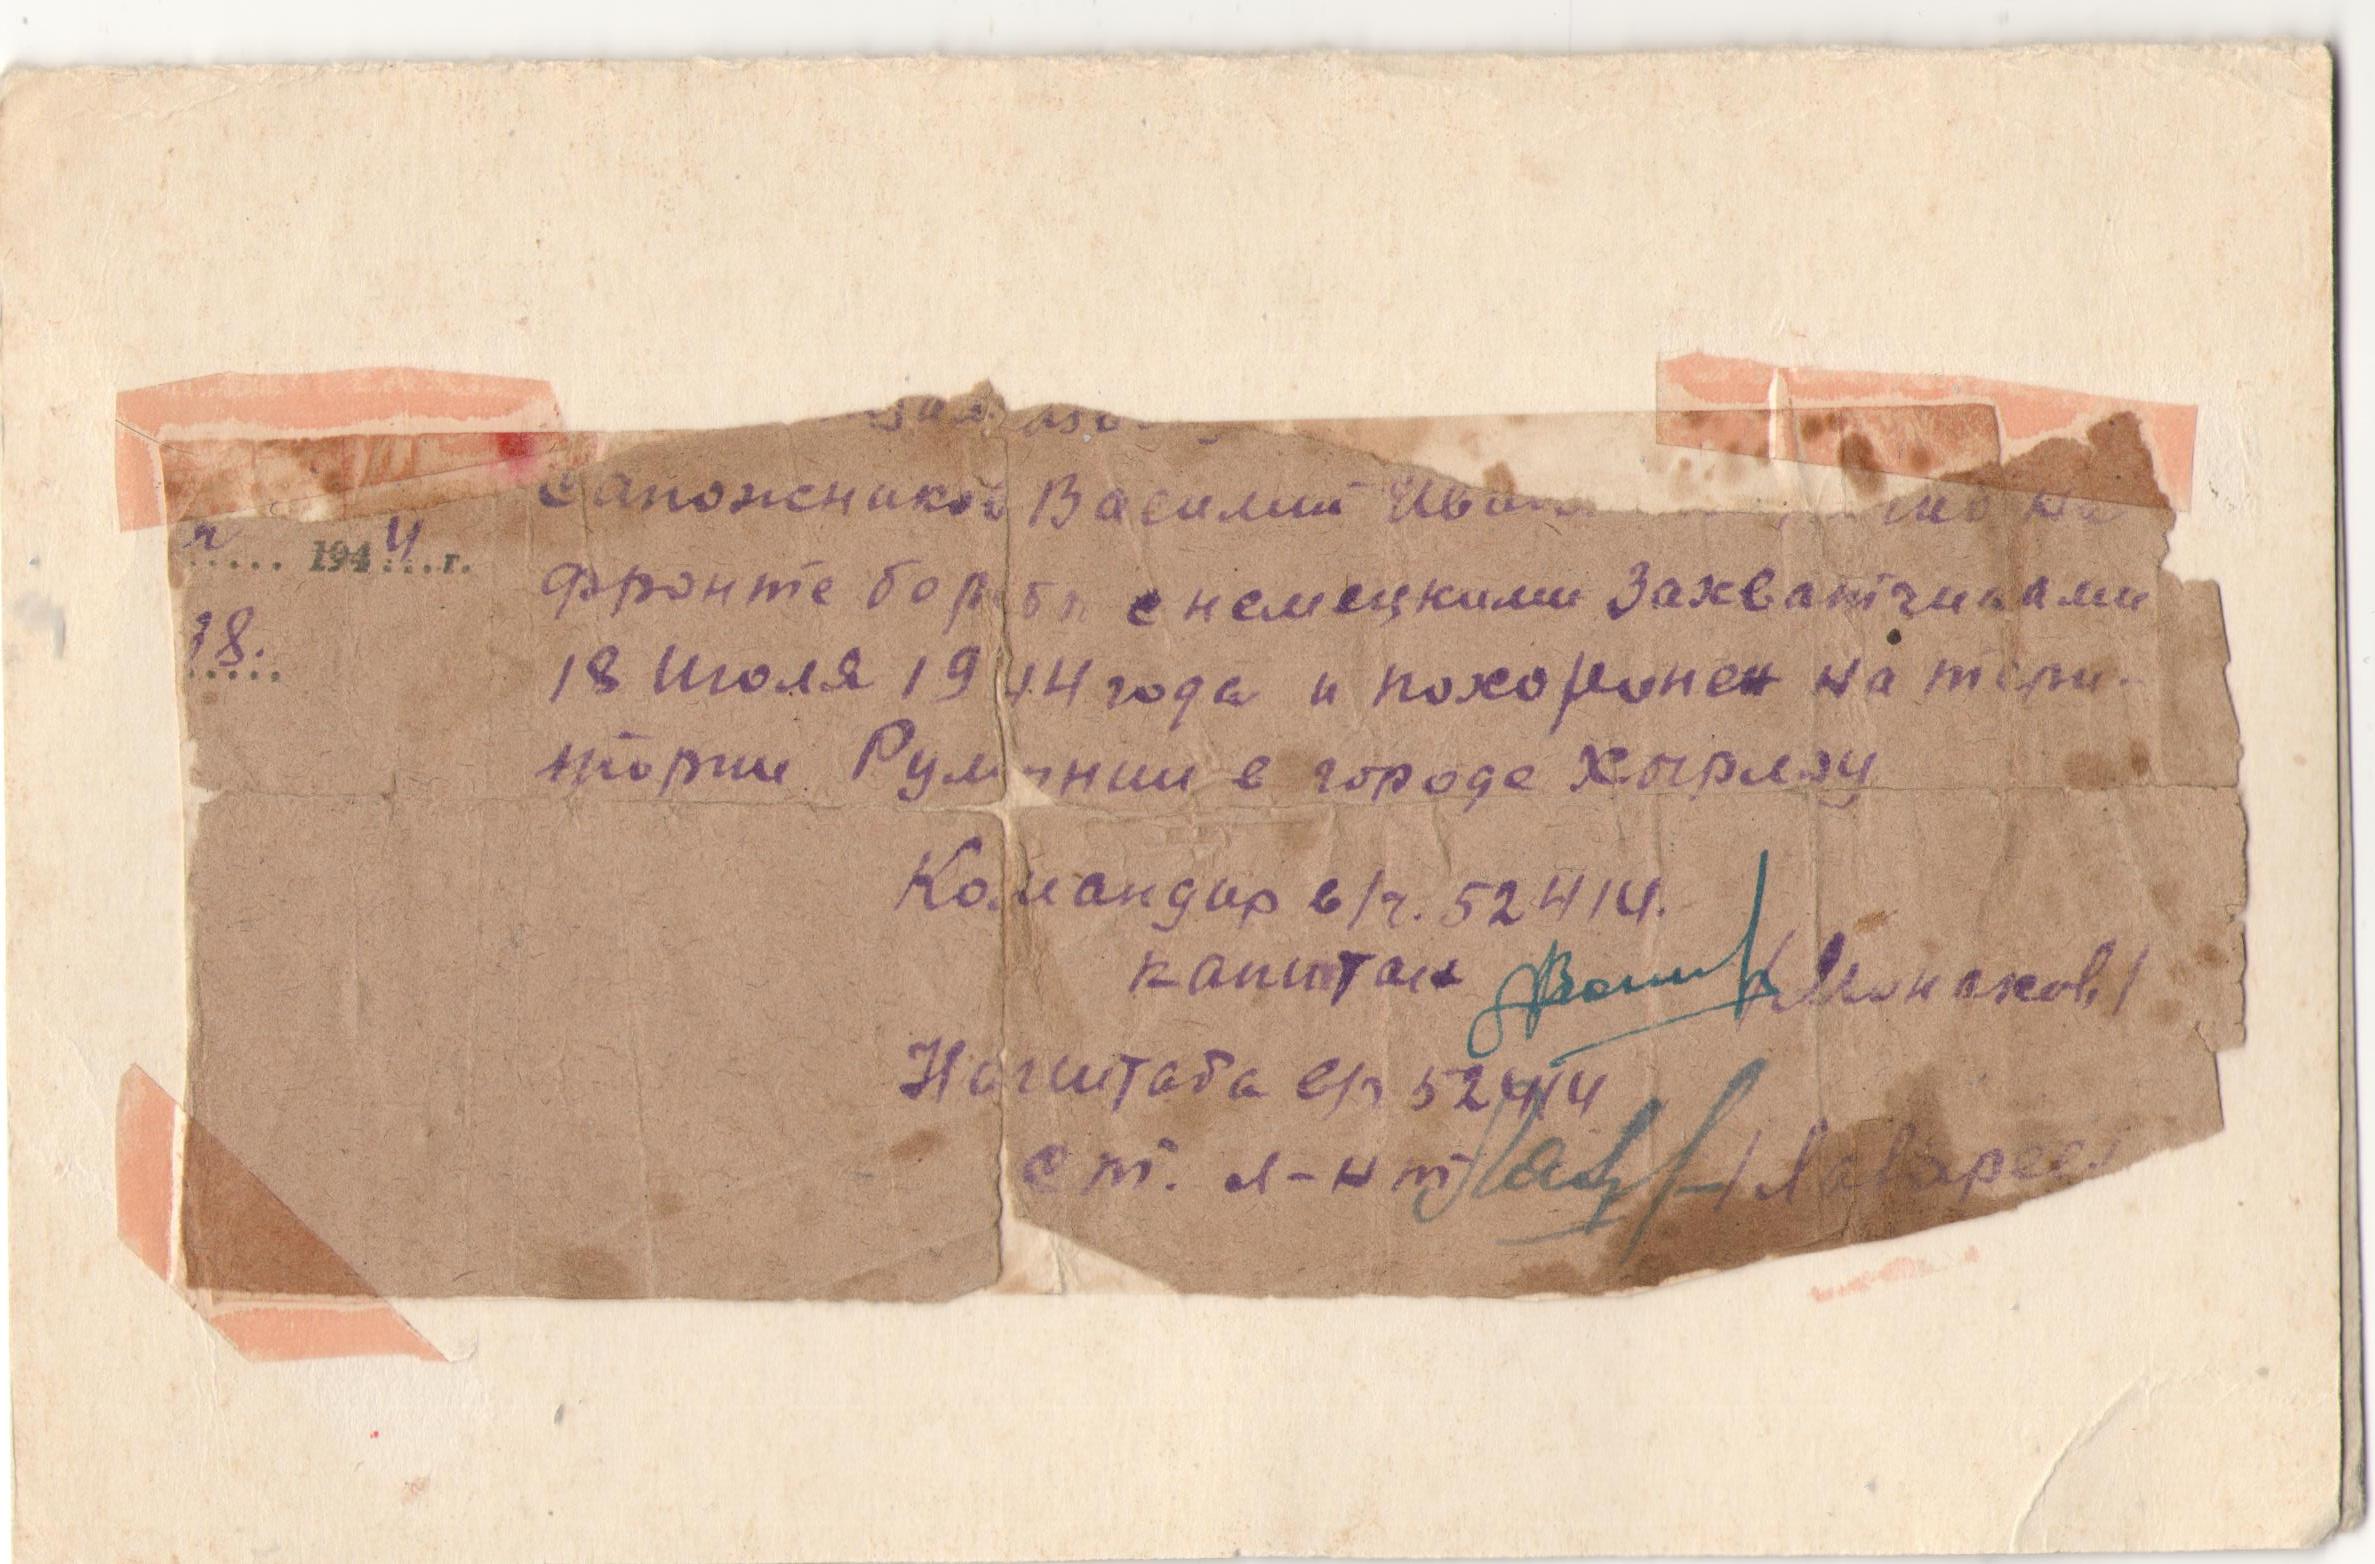 Сапожников Василий Иван на
194 4 г. фронте борьбы с немецкими захватчиками
18. 18 Июля 1944 года и похоронен на тери-
тории Румынии в городе Хырлэу
Командир в/ч. 52414.
капитан /Монаков/
Наштаба в/ч 52414
ст. л-нт